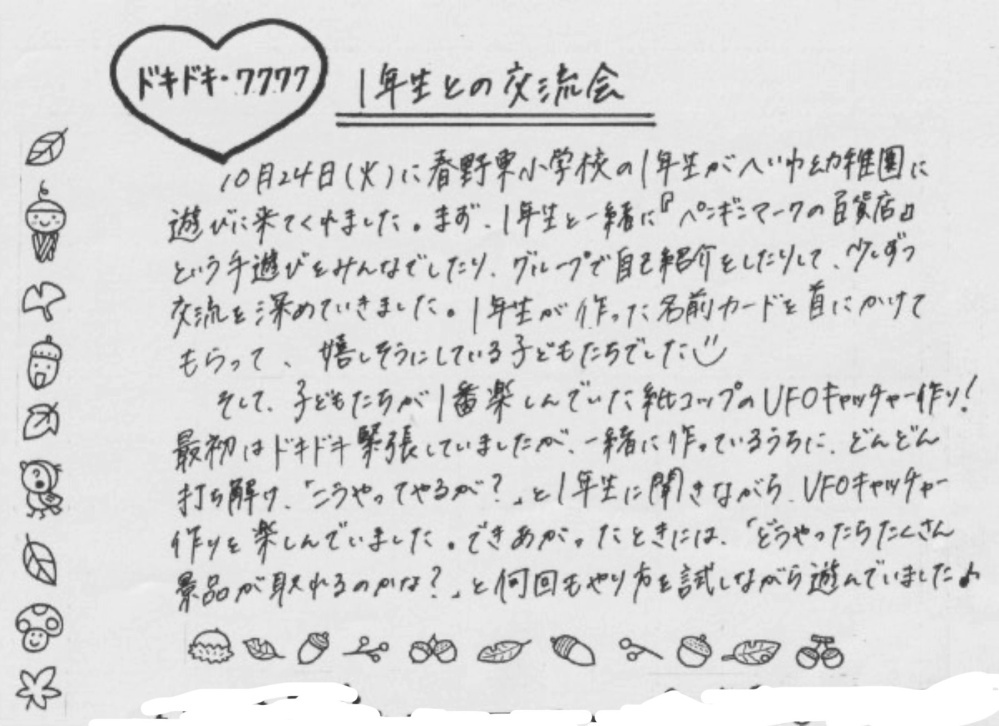 ドキドキ・ワクワク
1年生との交流会
10月24日(火)に春野東小学校の1年生がへいわ幼稚園に
遊びに来てくれました。まず、1年生と一緒に『ペンギンマークの百貨店』
という手遊びをみんなでしたり、グループで自己紹介をしたりして、少しずつ
交流を深めていきました。1年生が作った名前カードを首にかけて
もらって、嬉しそうにしている子どもたちでした
そして、子どもたちが1番楽しんでいた紙コップのUFOキャッチャー作り!
最初はドキドキ緊張していましたが、一緒に作っているうちに、どんどん
打ち解け、「こうやってやるが?」と1年生に聞きながら、UFOキャッチャー
作りを楽しんでいました。できあがったときには、「どうやったらたくさん
景品が取れるのかな?」と何回もやり方を試しながら遊んでいました♪